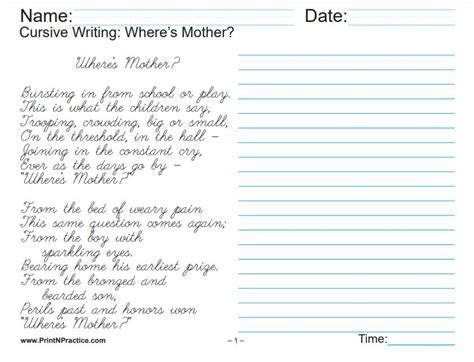 Name:
Date:
Cursive Writing: Where's Mother?
Where's Mother?
Bursting in from school or play.
This is what the children say,
Trooping, crowding, big or small,
On the threshold, in the hall –
Joining in the constant cry,
Ever as the days go by –
"Where's Mother?"
From the bed of weary pain
This same question comes again;
From the boy with
sparkling eyes.
Bearing home his earliest prize.
From the bronzed and
bearded son,
Perils past and honors won
"Where's Mother?"
www.PrintNPractice.com
– 1 –
Time: